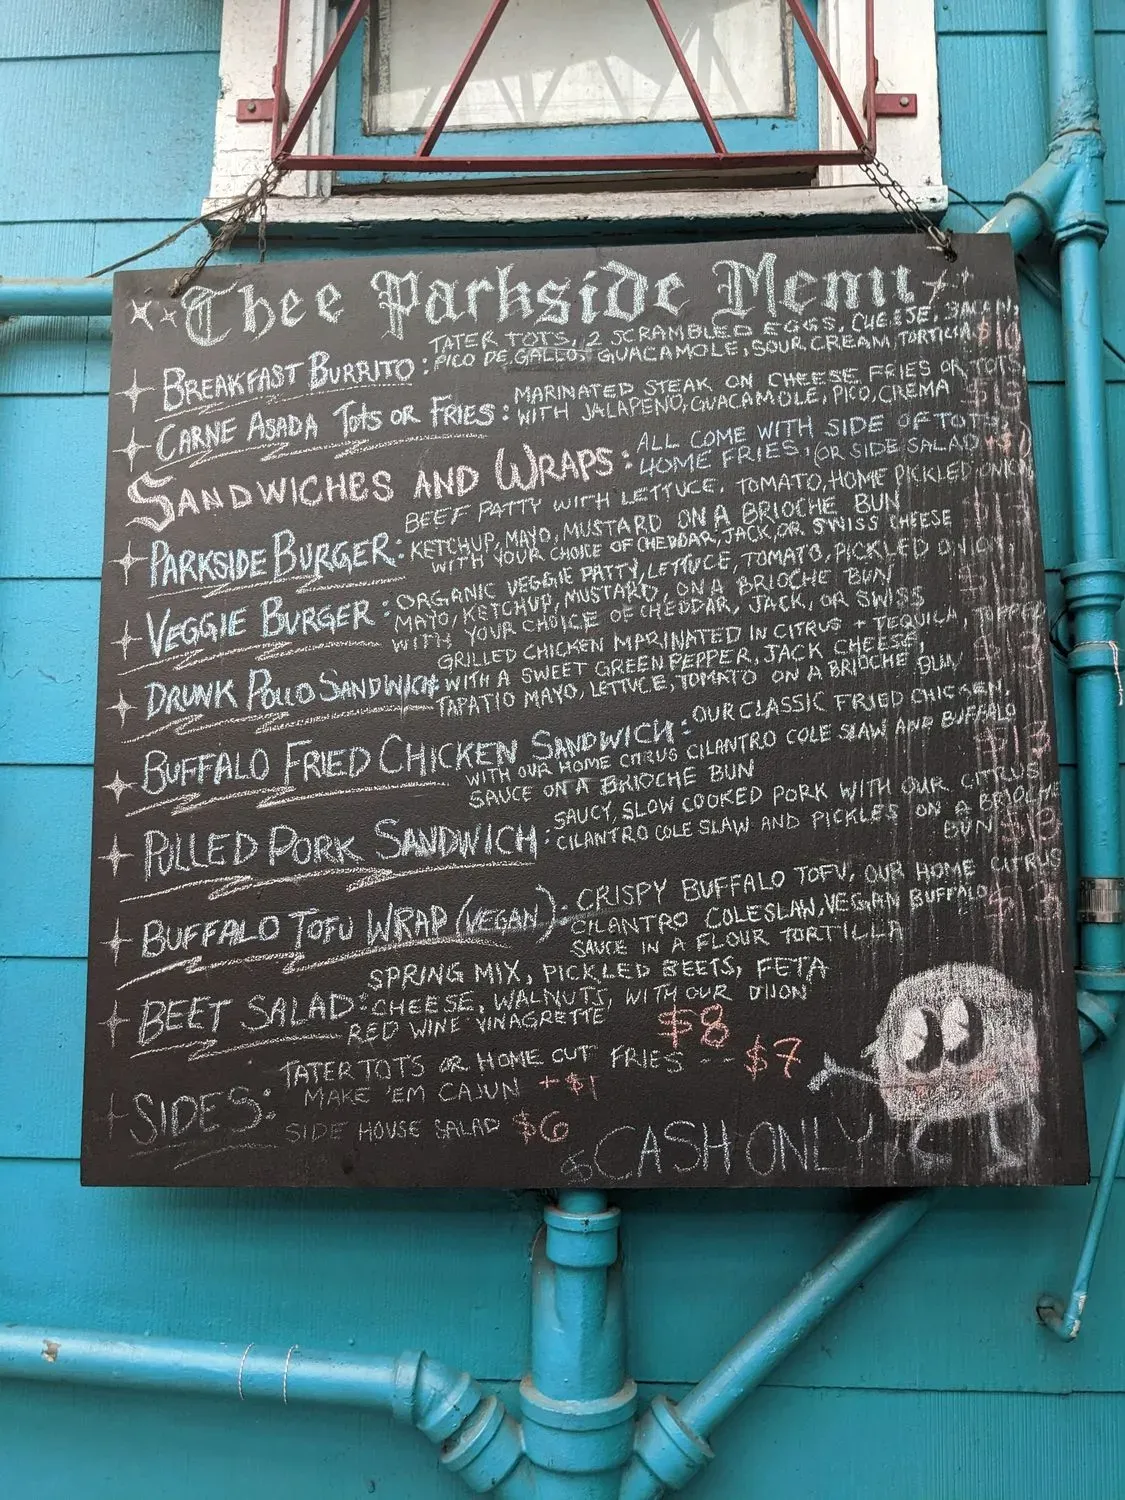 Thee Parkside Menu
BREAKFAST BURRITO: TATER TOTS, 2 SCRAMBLED EGGS, CHEESE, BACON,
PICO DE GALLO, GUACAMOLE, SOUR CREAM, TORTILLA $10
CARNE ASADA TOTS OR FRIES: MARINATED STEAK ON CHEESE FRIES OR TOTS
WITH JALAPENO, GUACAMOLE, PICO, CREMA
SANDWICHES AND WRAPS: ALL COME WITH SIDE OF TOTS,
HOME FRIES, (OR SIDE SALAD +$1)
PARKSIDE BURGER: BEEF PATTY WITH LETTUCE, TOMATO, HOME PICKLED ONION
KETCHUP, MAYO, MUSTARD ON A BRIOCHE BUN
WITH YOUR CHOICE OF CHEDDAR, JACK, OR SWISS CHEESE
VEGGIE BURGER: ORGANIC VEGGIE PATTY, LETTUCE, TOMATO, PICKLED ONION
MAYO, KETCHUP, MUSTARD, ON A BRIOCHE BUN
WITH YOUR CHOICE OF CHEDDAR, JACK, OR SWISS
DRUNK POLLO SANDWICH: GRILLED CHICKEN MARINATED IN CITRUS + TEQUILA, TOPPED
WITH A SWEET GREEN PEPPER, JACK CHEESE,
TAPATIO MAYO, LETTUCE, TOMATO ON A BRIOCHE BUN
BUFFALO FRIED CHICKEN SANDWICH: OUR CLASSIC FRIED CHICKEN,
WITH OUR HOME CITRUS CILANTRO COLE SLAW AND BUFFALO
SAUCE ON A BRIOCHE BUN $13
PULLED PORK SANDWICH: SAUCY, SLOW COOKED PORK WITH OUR CITRUS
CILANTRO COLE SLAW AND PICKLES ON A BRIOCHE
BUN $13
BUFFALO TOFU WRAP (VEGAN): CRISPY BUFFALO TOFU, OUR HOME CITRUS
CILANTRO COLESLAW, VEGAN BUFFALO $13
SAUCE IN A FLOUR TORTILLA
BEET SALAD: SPRING MIX, PICKLED BEETS, FETA
CHEESE, WALNUTS, WITH OUR DIJON
RED WINE VINAGRETTE $8
SIDES: TATER TOTS OR HOME CUT FRIES -- $7
MAKE 'EM CAJUN +$1
SIDE HOUSE SALAD $6
$CASH ONLY